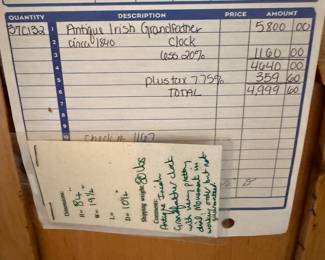 QUANTITY DESCRIPTION PRICE AMOUNT
37C132 1 Antique Irish Grandfather 5800 00
2 circa 1840 Clock
3 less 20% 1160 00
4 4640 00
5 plus tax 7.75% 359 60
6 TOTAL 4,999 60
7
8
9
check # 1167
Dimensions:
H = 84 "
W = 19 1/2 "
D = 10 1/2
Shipping weight: 80 lbs
Comments:
Antique Irish
Grandfather clock
with very pretty
dial. Movement in
working order but not
guaranteed